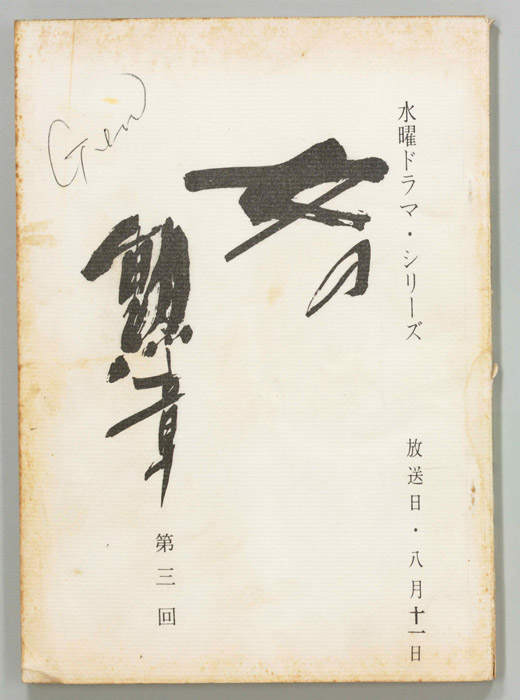 水曜ドラマ・シリーズ
放送日・八月十一日
女の
勲章
第三回
Gen